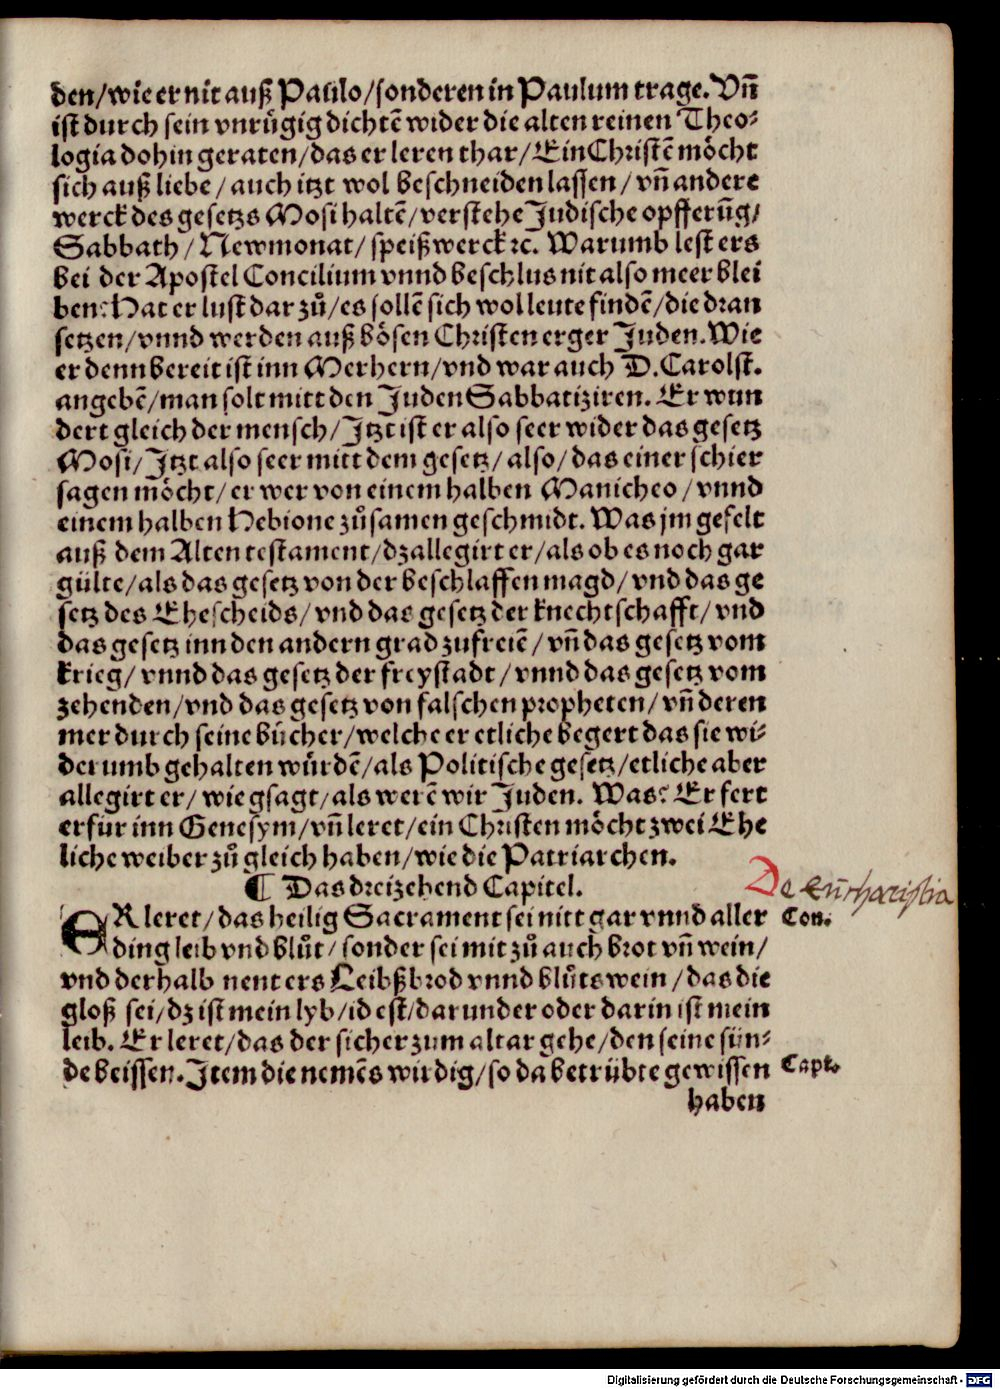 den/wie er nit auß Paulo/sonderen in Paulum trage. Vñ
ist durch sein vnrůgig dichtẽ wider die alten reinen Theo-
logia dohin geraten/das er leren thar/Ein Christẽ möcht
sich auß liebe/auch itzt wol beschneiden lassen/vñ andere
werck des gesetzs Mosi haltẽ/verstehe Judische opfferũg/
Sabbath/Newmonat/speißwerck ꝛc. Warumb lest ers
bei der Apostel Concilium vnnd beschlus nit also meer blei
ben? Hat er lust dar zů/es sollẽ sich wol leute findẽ/die dran
setzen/vnnd werden auß bösen Christen erger Juden. Wie
er denn bereit ist inn Merhern/vnd war auch D. Carolst.
angebẽ/man solt mitt den Juden Sabbatiziren. Er wun
dert gleich der mensch/Jtzt ist er also seer wider das gesetz
Mosi/Jtzt also seer mitt dem gesetz/also/das einer schier
sagen möcht/er wer von einem halben Manicheo/vnnd
einem halben Hebione zůsamen geschmidt. Was jm gefelt
auß dem Alten testament/dz allegirt er/als ob es noch gar
gülte/als das gesetz von der beschlaffen magd/vnd das ge
setz des Ehescheids/vnd das gesetz der knechtschafft/vnd
das gesetz inn den andern grad zufreiẽ/vñ das gesetz vom
krieg/vnnd das gesetz der freystadt/vnnd das gesetz vom
zehenden/vnd das gesetz von falschen propheten/vñ deren
mer durch seine bücher/welche er etliche begert das sie wi-
derumb gehalten würdẽ/als Politische gesetz/etliche aber
allegirt er/wie gsagt/als werẽ wir Juden. Was? Er fert
erfür inn Genesym/vñ leret/ein Christen möcht zwei Ehe
liche weiber zů gleich haben/wie die Patriarchen.
¶ Das dreizehend Capitel.
De eũcharistia
ER leret/das heilig Sacrament sei nitt gar vnnd aller
Con.
ding leib vnd blůt/sonder sei mit zů auch brot vñ wein/
vnd derhalb nent ers Leibßbrod vnnd blůtswein/das die
gloß sei/dz ist mein lyb/id est/darunder oder darin ist mein
leib. Er leret/das der sicher zum altar gehe/den seine sün-
de beissen. Jtem die nemẽs wirdig/so da betrübte gewissen
Capt.
haben
Digitalisierung gefördert durch die Deutsche Forschungsgemeinschaft - DFG